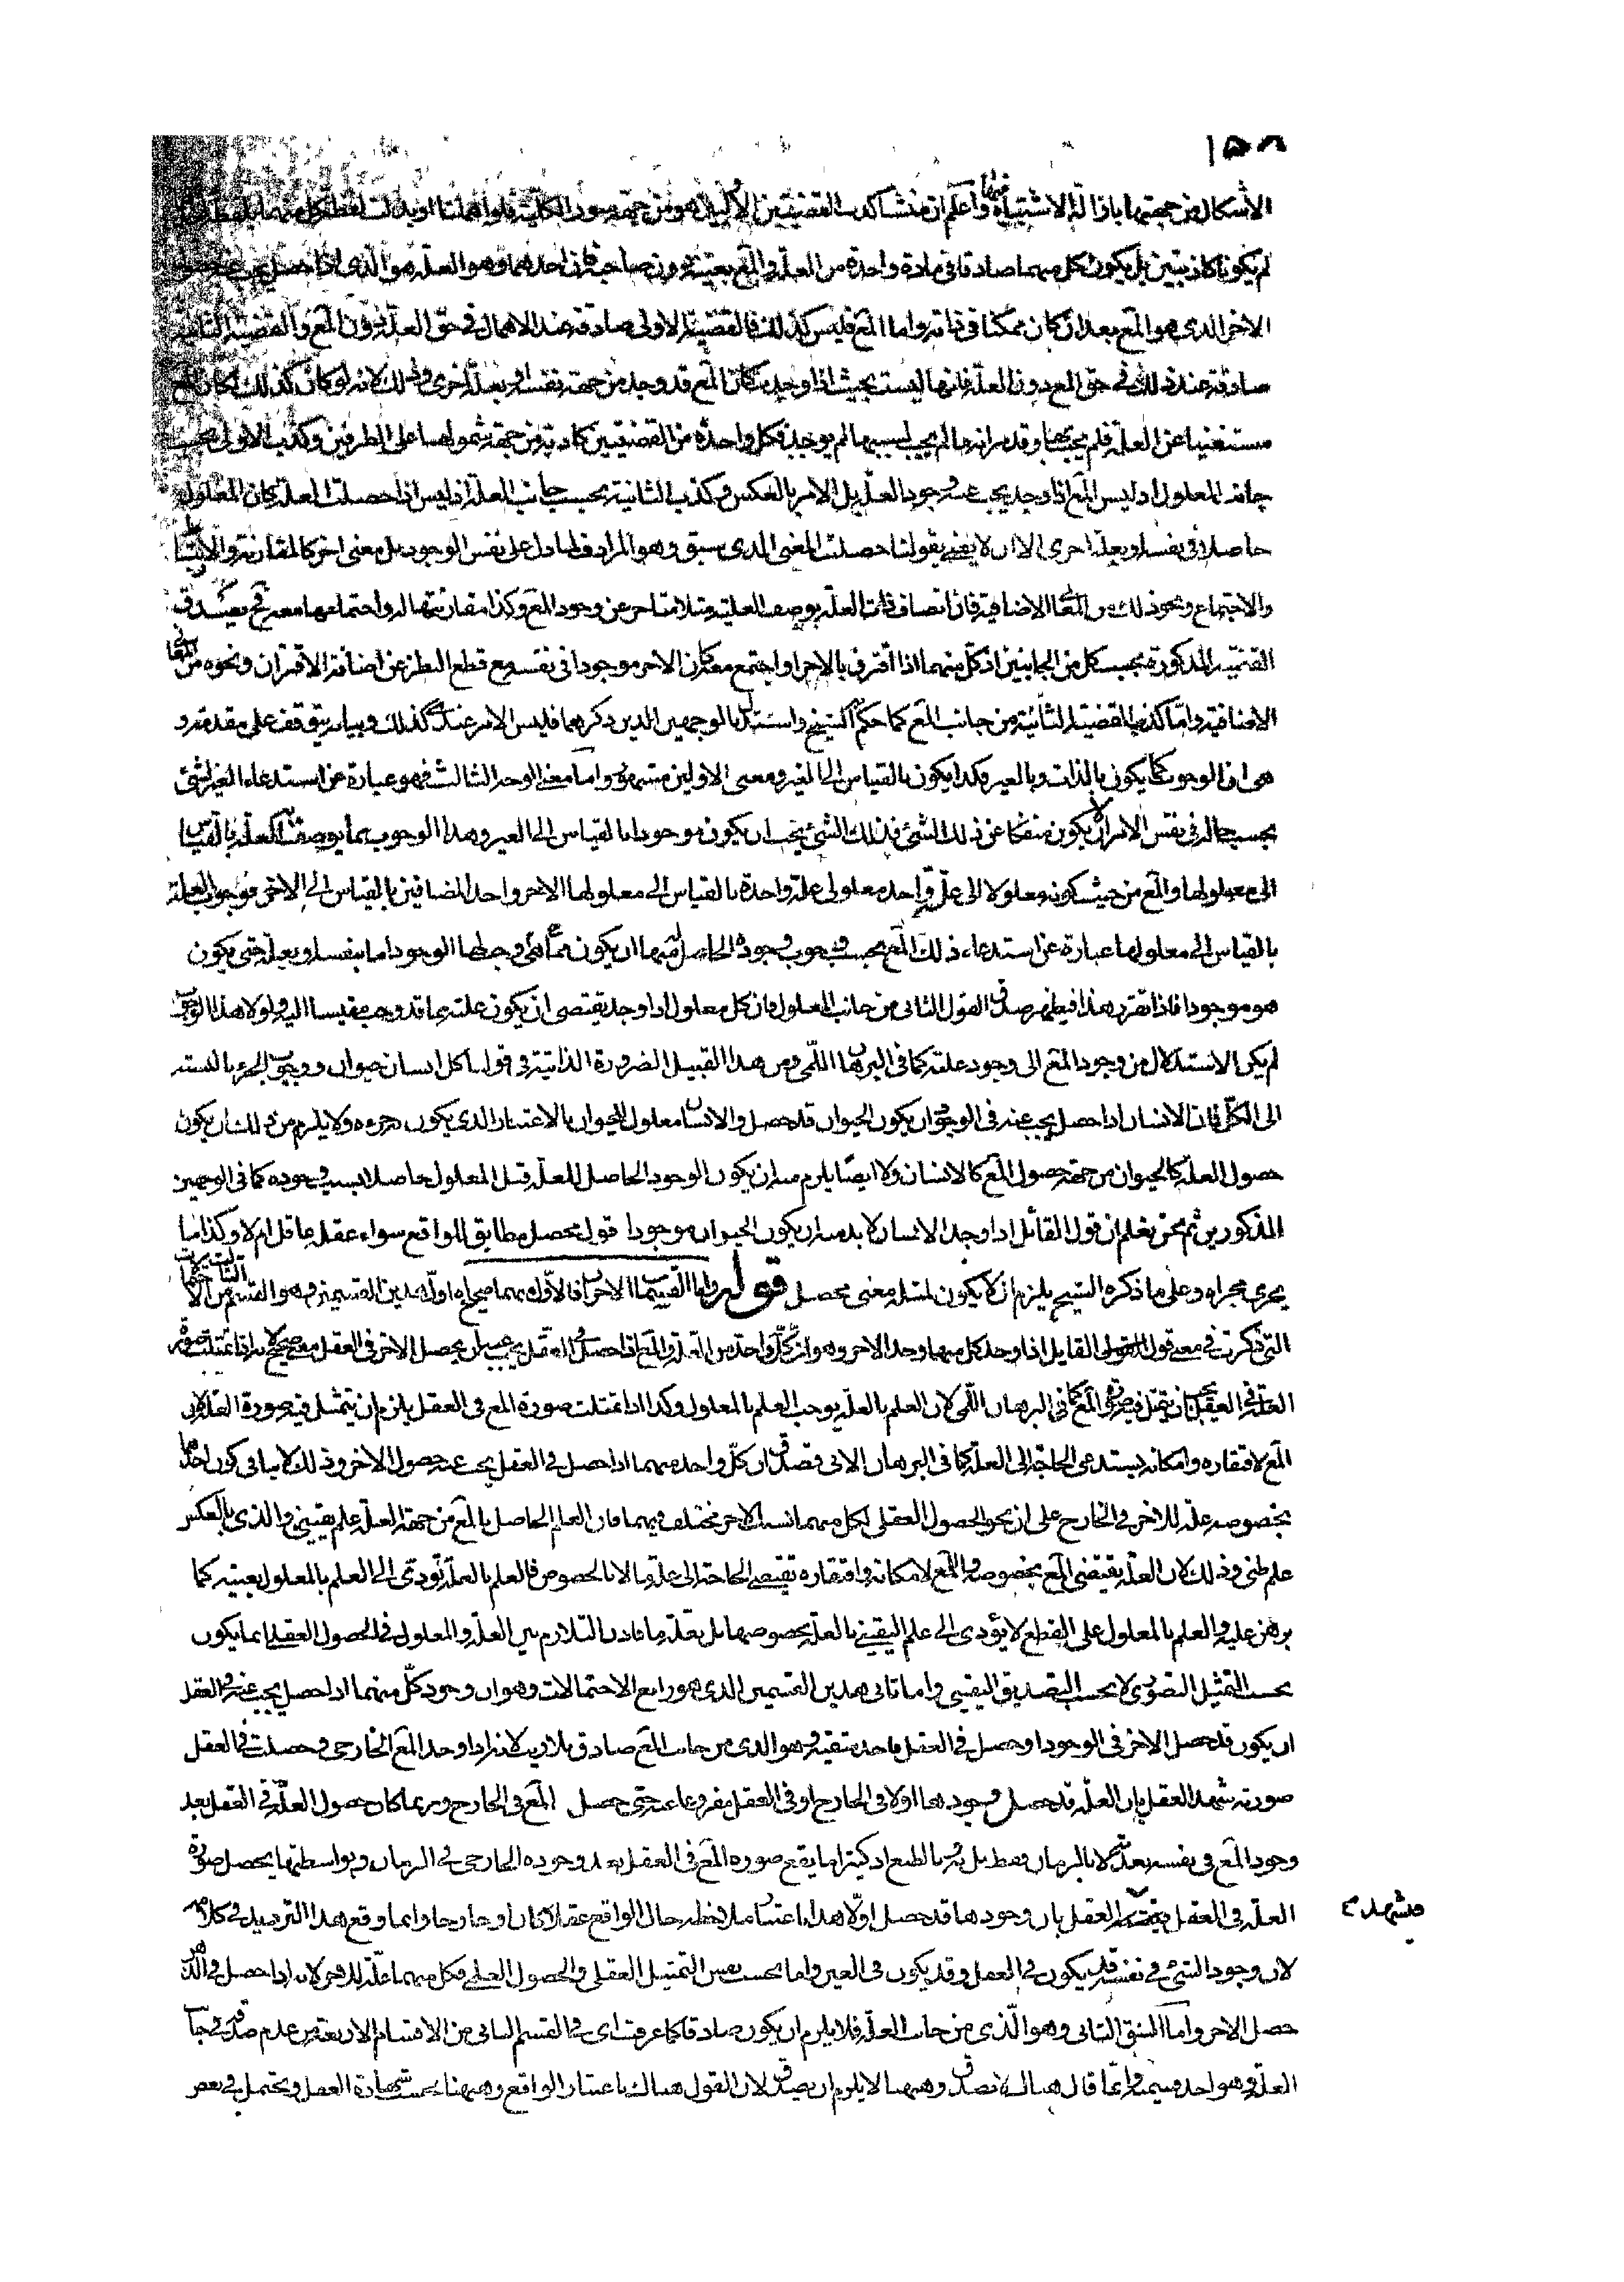 ١٥٨
الاشكال من جهتها بازالة الاشتباه فيها واعلم ان منشأ كذب القضيتين الاوليين هو من جهة سور الكلية فلو اهملنا او بدلت لفظة كل منهما بلفظة
لم يكونا كاذبتين بل يكون كل منهما صادقا في مادة واحدة من العلة والمع بعينه دون صاحبه فان احدهما وهو العلة هو الذي اذا حصل يجب عنه حصول
الاخر الذي هو المع بعد ان كان ممكنا في ذاته واما المع فليس كذلك فالقضية الاولى صادقة عند الاهمال في حق العلة دون المع والقضية الثانية
صادقة عند ذلك في حق المع دون العلة فانها ليست بحيث اذا وجدت كان المع قد وجد من جهة نفسه او بعلة اخرى وذلك لانه لو كان كذلك لكان المع
مستغنيا عن العلة فلم يجب بها وقد مر انه ما لم يجب بسببها لم يوجد فكل واحدة من القضيتين كاذبة من جهة شمولها على الطرفين وكذب الاولى بحسب
جانب المعلول اذ ليس المع اذا وجد يجب عنه وجود العلة بل الامر بالعكس وكذب الثانية بحسب جانب العلة اذ ليس اذا حصلت العلة كان المعلول
حاصلا في نفسه او بعلة اخرى الا ان لا يعنى بقولنا حصلت المعنى الذي سبق وهو المرادف لما دل على نفس الوجود بل معنى اخر كالمقارنة والاثنينية
والاجتماع ونحو ذلك من المعاني الاضافية فان اتصاف ذات العلة بوصف العلية مثلا متاخر عن وجود المع وكذا مقارنتها له واجتماعها معه فح يصدق
القضية المذكورة بحسب كل من الجانبين اذ كل منهما اذا اقترن بالاخر او اجتمع معه كان الاخر موجودا في نفسه مع قطع النظر عن اضافة الاقتران ونحوه من المعاني
الاضافية واما كذب القضية الثانية من جانب المع كما حكم به الشيخ واستدل بالوجهين الذين ذكرهما فليس الامر عندك كذلك وبيانه يتوقف على مقدمة و
هي ان الوجوب كما يكون بالذات وبالغير فكذا يكون بالقياس الى الغير ومعنى الاولين مشهور واما معنى الوجه الثالث فهو عبارة عن استدعاء الغير لشئ
بحسب حاله في نفس الامر ان لا يكون منفكا عن ذلك الشئ فذلك الشئ يجب ان يكون موجودا بالقياس الى الغير وهذا الوجوب مما يوصف به العلة بالقياس
الى معلولها والمع من حيث كونه معلولا الى علة واحد معلولى علة واحدة بالقياس الى معلولها الاخر واحد المضافين بالقياس الى الاخر فوجوب العلة
بالقياس الى معلولها عبارة عن استدعاء ذلك المع بحسب وجوب وجوده الحاصل منها ان يكون هي وجب لها الوجود اما بنفسه او بعلة حتى يكون
هو موجودا فاذا تقرر هذا فيظهر صدق القول الثاني من جانب المعلول فان كل معلول اذا وجد يقتضي ان يكون علته مما قد وجب مقيسا اليه ولولا هذا الوجوب
لم يكن الاستدلال من وجود المع الى وجود علته كما في البرهان اللمى ومن هذا القبيل الضرورة الذاتية في قولنا كل انسان حيوان ووجوب الجزء بالنسبة
الى الكل فان الانسان اذا حصل يجب عنه في الوجود ان يكون الحيوان قد حصل والانسان معلول للحيوان بالاعتبار الذي يكون جزءه ولا يلزم من ذلك ان يكون
حصول العلة كالحيوان من جهة حصول المع كالانسان ولا ايضا يلزم منه ان يكون الوجود الحاصل للعلة قبل المعلول حاصلا بسبب وجوده كما في الوجهين
المذكورين ثم نحن نعلم ان قول القائل اذا وجد الانسان لابد منه ان يكون الحيوان موجودا قول محصل مطابق للواقع سواء عقله عاقل ام لا وكذا ما
يجرى مجراه وعلى ما ذكره الشيخ يلزم ان لا يكون لمثله معنى محصل قوله واما القسمان الاخران فالاول منهما صحيح اه اول هذين القسمين هو القسم الثالث من الاقسام
التي ذكرت في معنى قول القائل اذا وجد كل منهما وجد الاخر وهو ان كل واحد من العلة والمع اذا حصل في العقل يجب عنه ان يحصل الاخر في العقل معنى صحيح لانه اذا تمثلت صورة
العلة في العقل يجب ان يتمثل فيه صورة المع كما في البرهان اللمى لان العلم بالعلة يوجب العلم بالمعلول وكذا اذا تمثلت صورة المع في العقل يلزم ان يتمثل فيه صورة العلة لان
المع لافتقاره وامكانه يستدعى الحاجة الى العلة كما في البرهان الانى فصدق ان كل واحد منهما اذا حصل في العقل يجب عنه حصول الاخر وذلك لا ينافي كون احدهما
بخصوصه علة للاخر في الخارج على ان نحو الحصول العقلى لكل منهما بسبب الاخر مختلف فيهما فان العلم الحاصل بالمع من جهة العلة علم يقيني والذي بالعكس
علم ظني وذلك لان العلة يقتضى المع بخصوصه والمع لامكانه وافتقاره يقتضى الحاجة الى علة ما لا بالخصوص فالعلم بالعلة يؤدى الى العلم بالمعلول بعينه كما
برهن عليه والعلم بالمعلول على القطع لا يؤدى الى علم اليقيني بالعلة بخصوصها بل بعلة ما فاذن التلازم بين العلة والمعلول في الحصول العقلى انما يكون
بحسب التمثيل التصورى لا بحسب التصديق اليقيني واما ثاني هذين القسمين الذي هو رابع الاحتمالات وهو ان وجود كل منهما اذا حصل يجب عنه في العقل
ان يكون قد حصل الاخر في الوجود او حصل في العقل فاحد شقيه وهو الذي من جانب المع صادق بلا ريب لانه اذا وجد المع الخارجي وحصلت في العقل
صورته شهد العقل بان العلة قد حصل وجودها اولا في الخارج او في العقل مفروغا عنه حتى حصل المع في الخارج وربما كان حصول العلة في العقل بعد
وجود المع في نفسه بعدية لا بالزمان فقط بل بالطبع اذ كثيرا ما يقع صورة المع في العقل بعد وجوده الخارجي في الزمان وبواسطتها يحصل صورة
العلة في العقل فيشهد العقل بان وجودها قد حصل اولا هذا اعتبار ملاحظة حال الواقع عقلا كان او خارجا وانما وقع هذا الترديد في كلامه
فيشهد
لان وجود الشئ في نفسه قد يكون في العقل وقد يكون في العين واما بحسب نفس التمثيل العقلى والحصول العلمى فكل منهما علة للاخر لانه اذا حصل في الذهن
حصل الاخر واما الشق الثاني وهو الذي من جانب العلة فلا يلزم ان يكون صادقا كما عرفت اى في القسم الثاني من الاقسام الاربعة من عدم صدقه في جانب
العلة وهو احد قسميه وانما قال هناك لا تصدق وههنا لا يلزم ان يصدق لان القول هناك باعتبار الواقع وههنا بحسب شهادة العقل ويحتمل في بعض